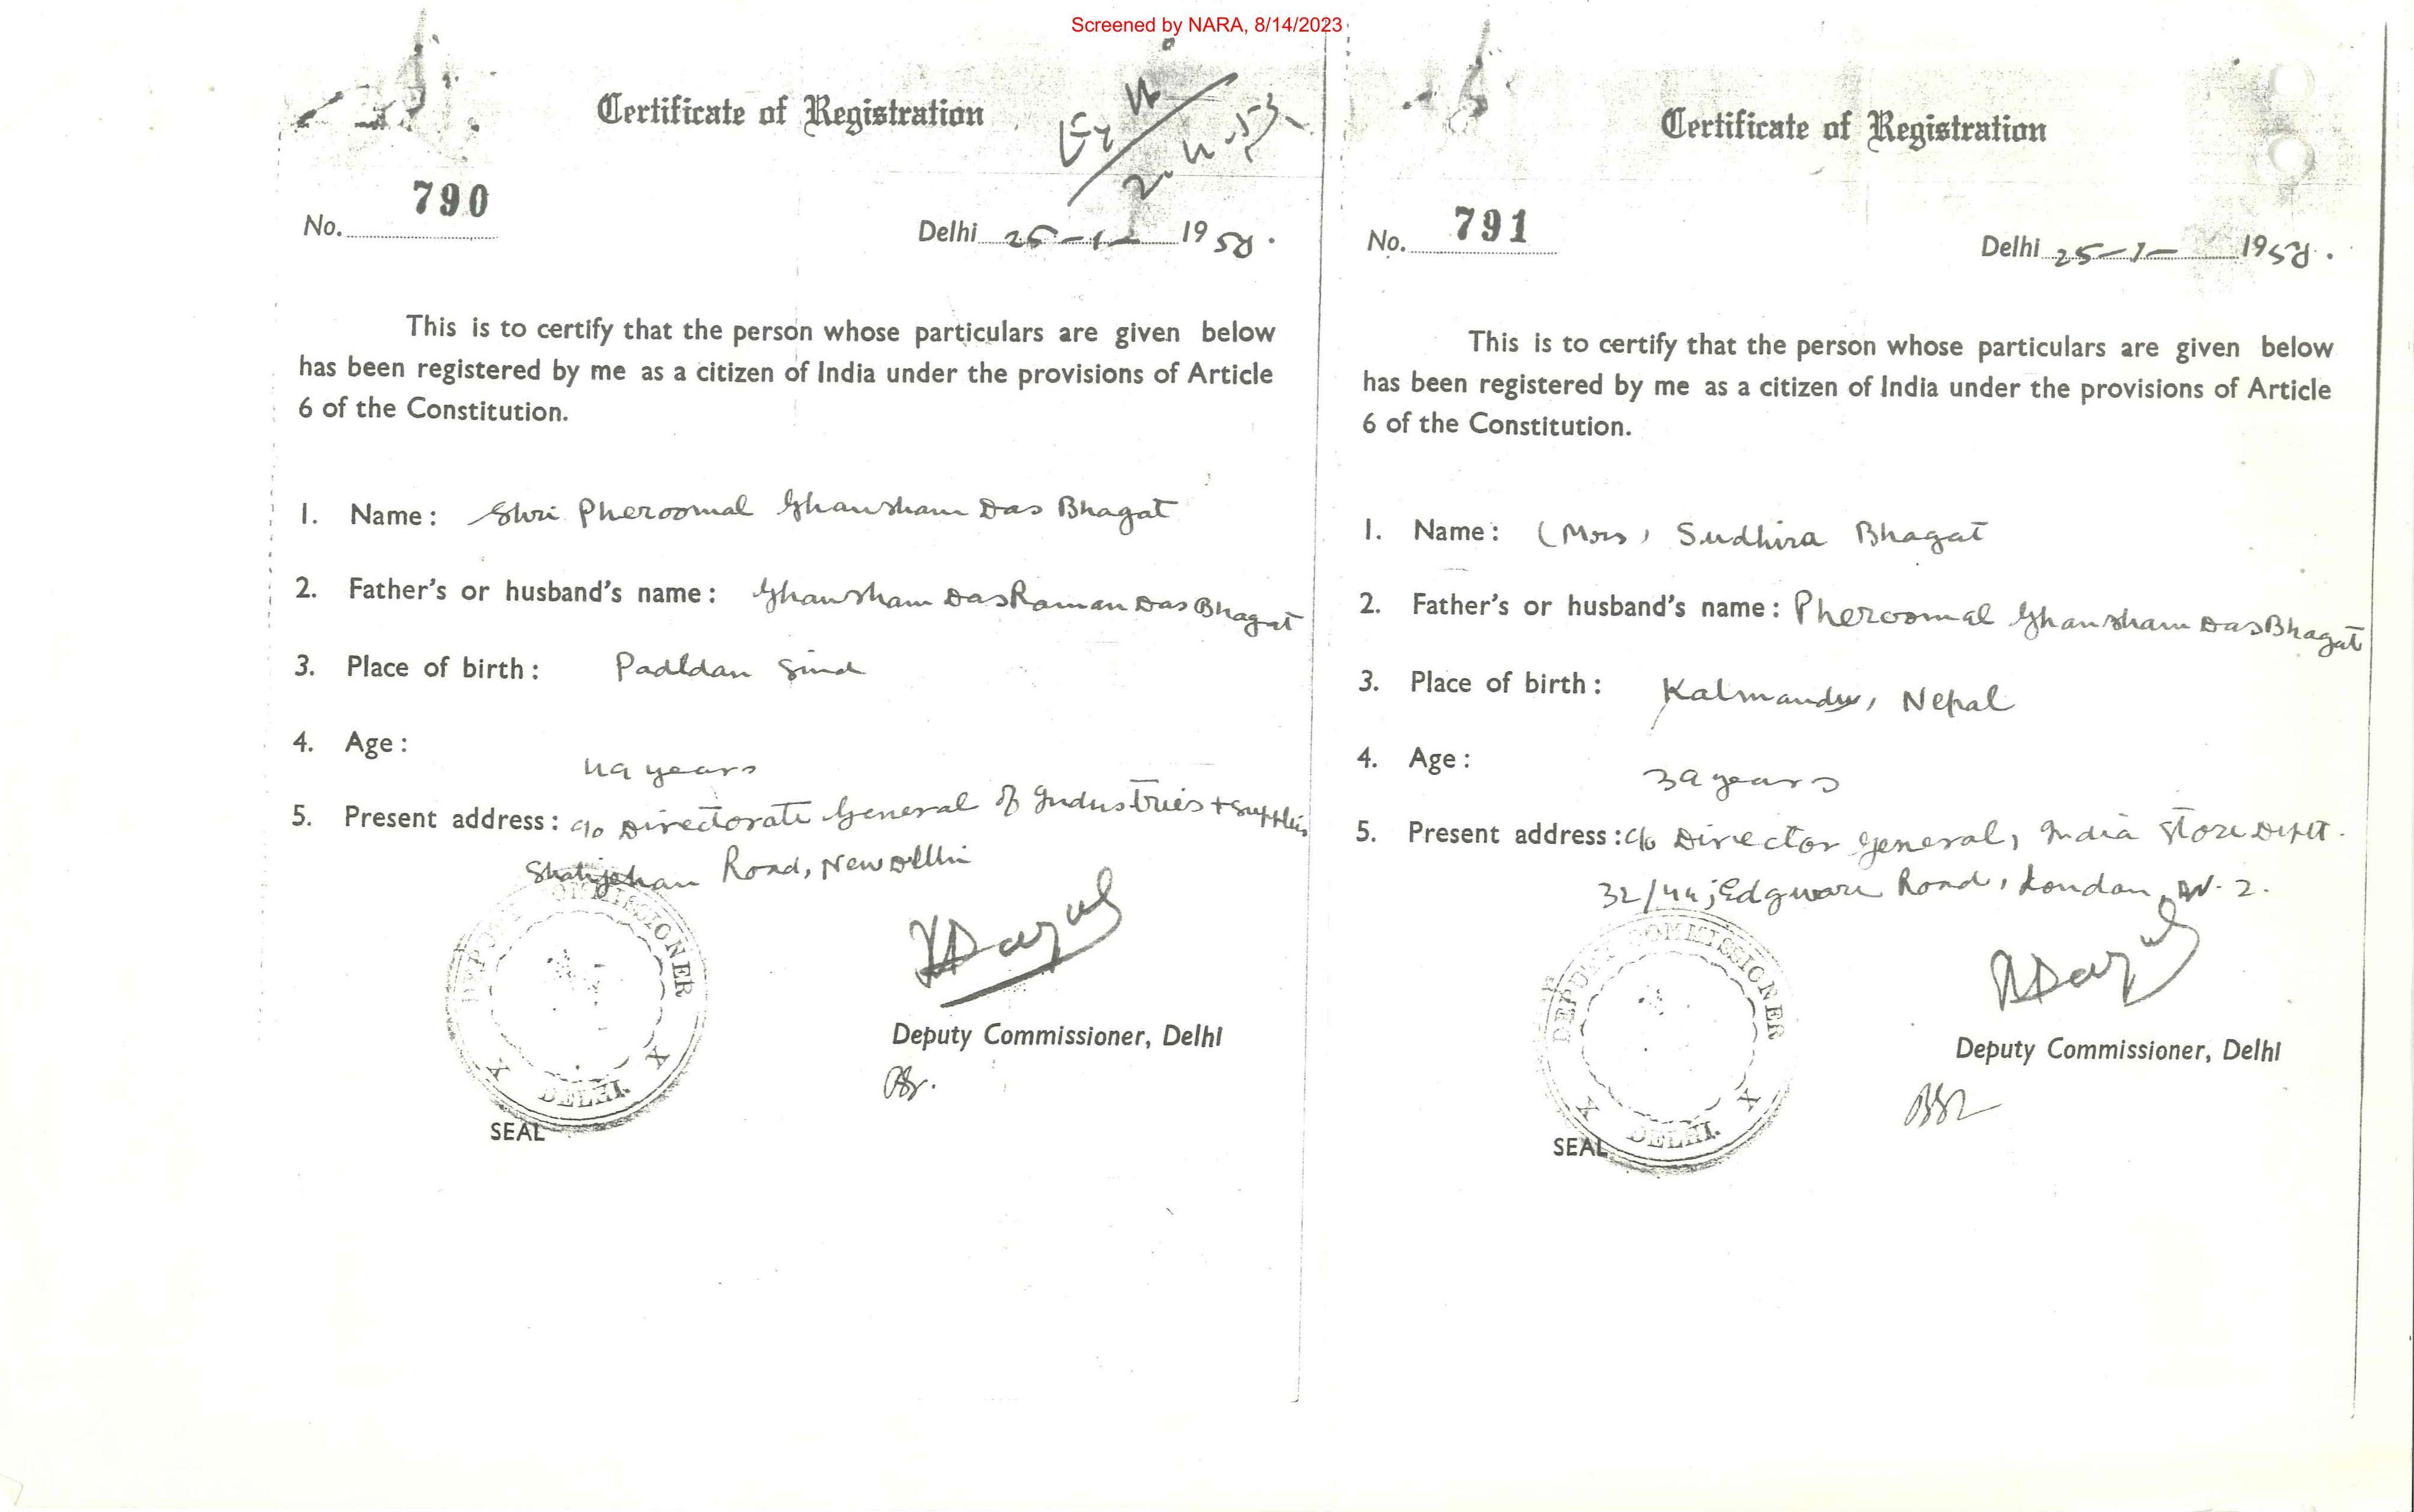 Screened by NARA, 8/14/2023
Certificate of Registration
No. 790
Delhi 25-1- 1950.
This is to certify that the person whose particulars are given below
has been registered by me as a citizen of India under the provisions of Article
6 of the Constitution.
1. Name: Shri Pheroomal Ghansham Das Bhagat
2. Father's or husband's name: Ghansham Das Raman Das Bhagat
3. Place of birth: Padldan Sind
4. Age:
49 years
5. Present address: c/o Directorate General of Industries + Supplies
Shahjehan Road, New Delhi
DEPUTY COMMISSIONER
X DELHI. X
Deputy Commissioner, Delhi
SEAL
Certificate of Registration
No. 791
Delhi 25-1- 1950.
This is to certify that the person whose particulars are given below
has been registered by me as a citizen of India under the provisions of Article
6 of the Constitution.
1. Name: (Mrs) Sudhira Bhagat
2. Father's or husband's name: Pheroomal Ghansham Das Bhagat
3. Place of birth: Katmandu, Nepal
4. Age:
39 years
5. Present address: c/o Director General, India Store Deptt.
32/44; Edgware Road, London, W. 2.
DEPUTY COMMISSIONER
X DELHI. X
Deputy Commissioner, Delhi
SEAL